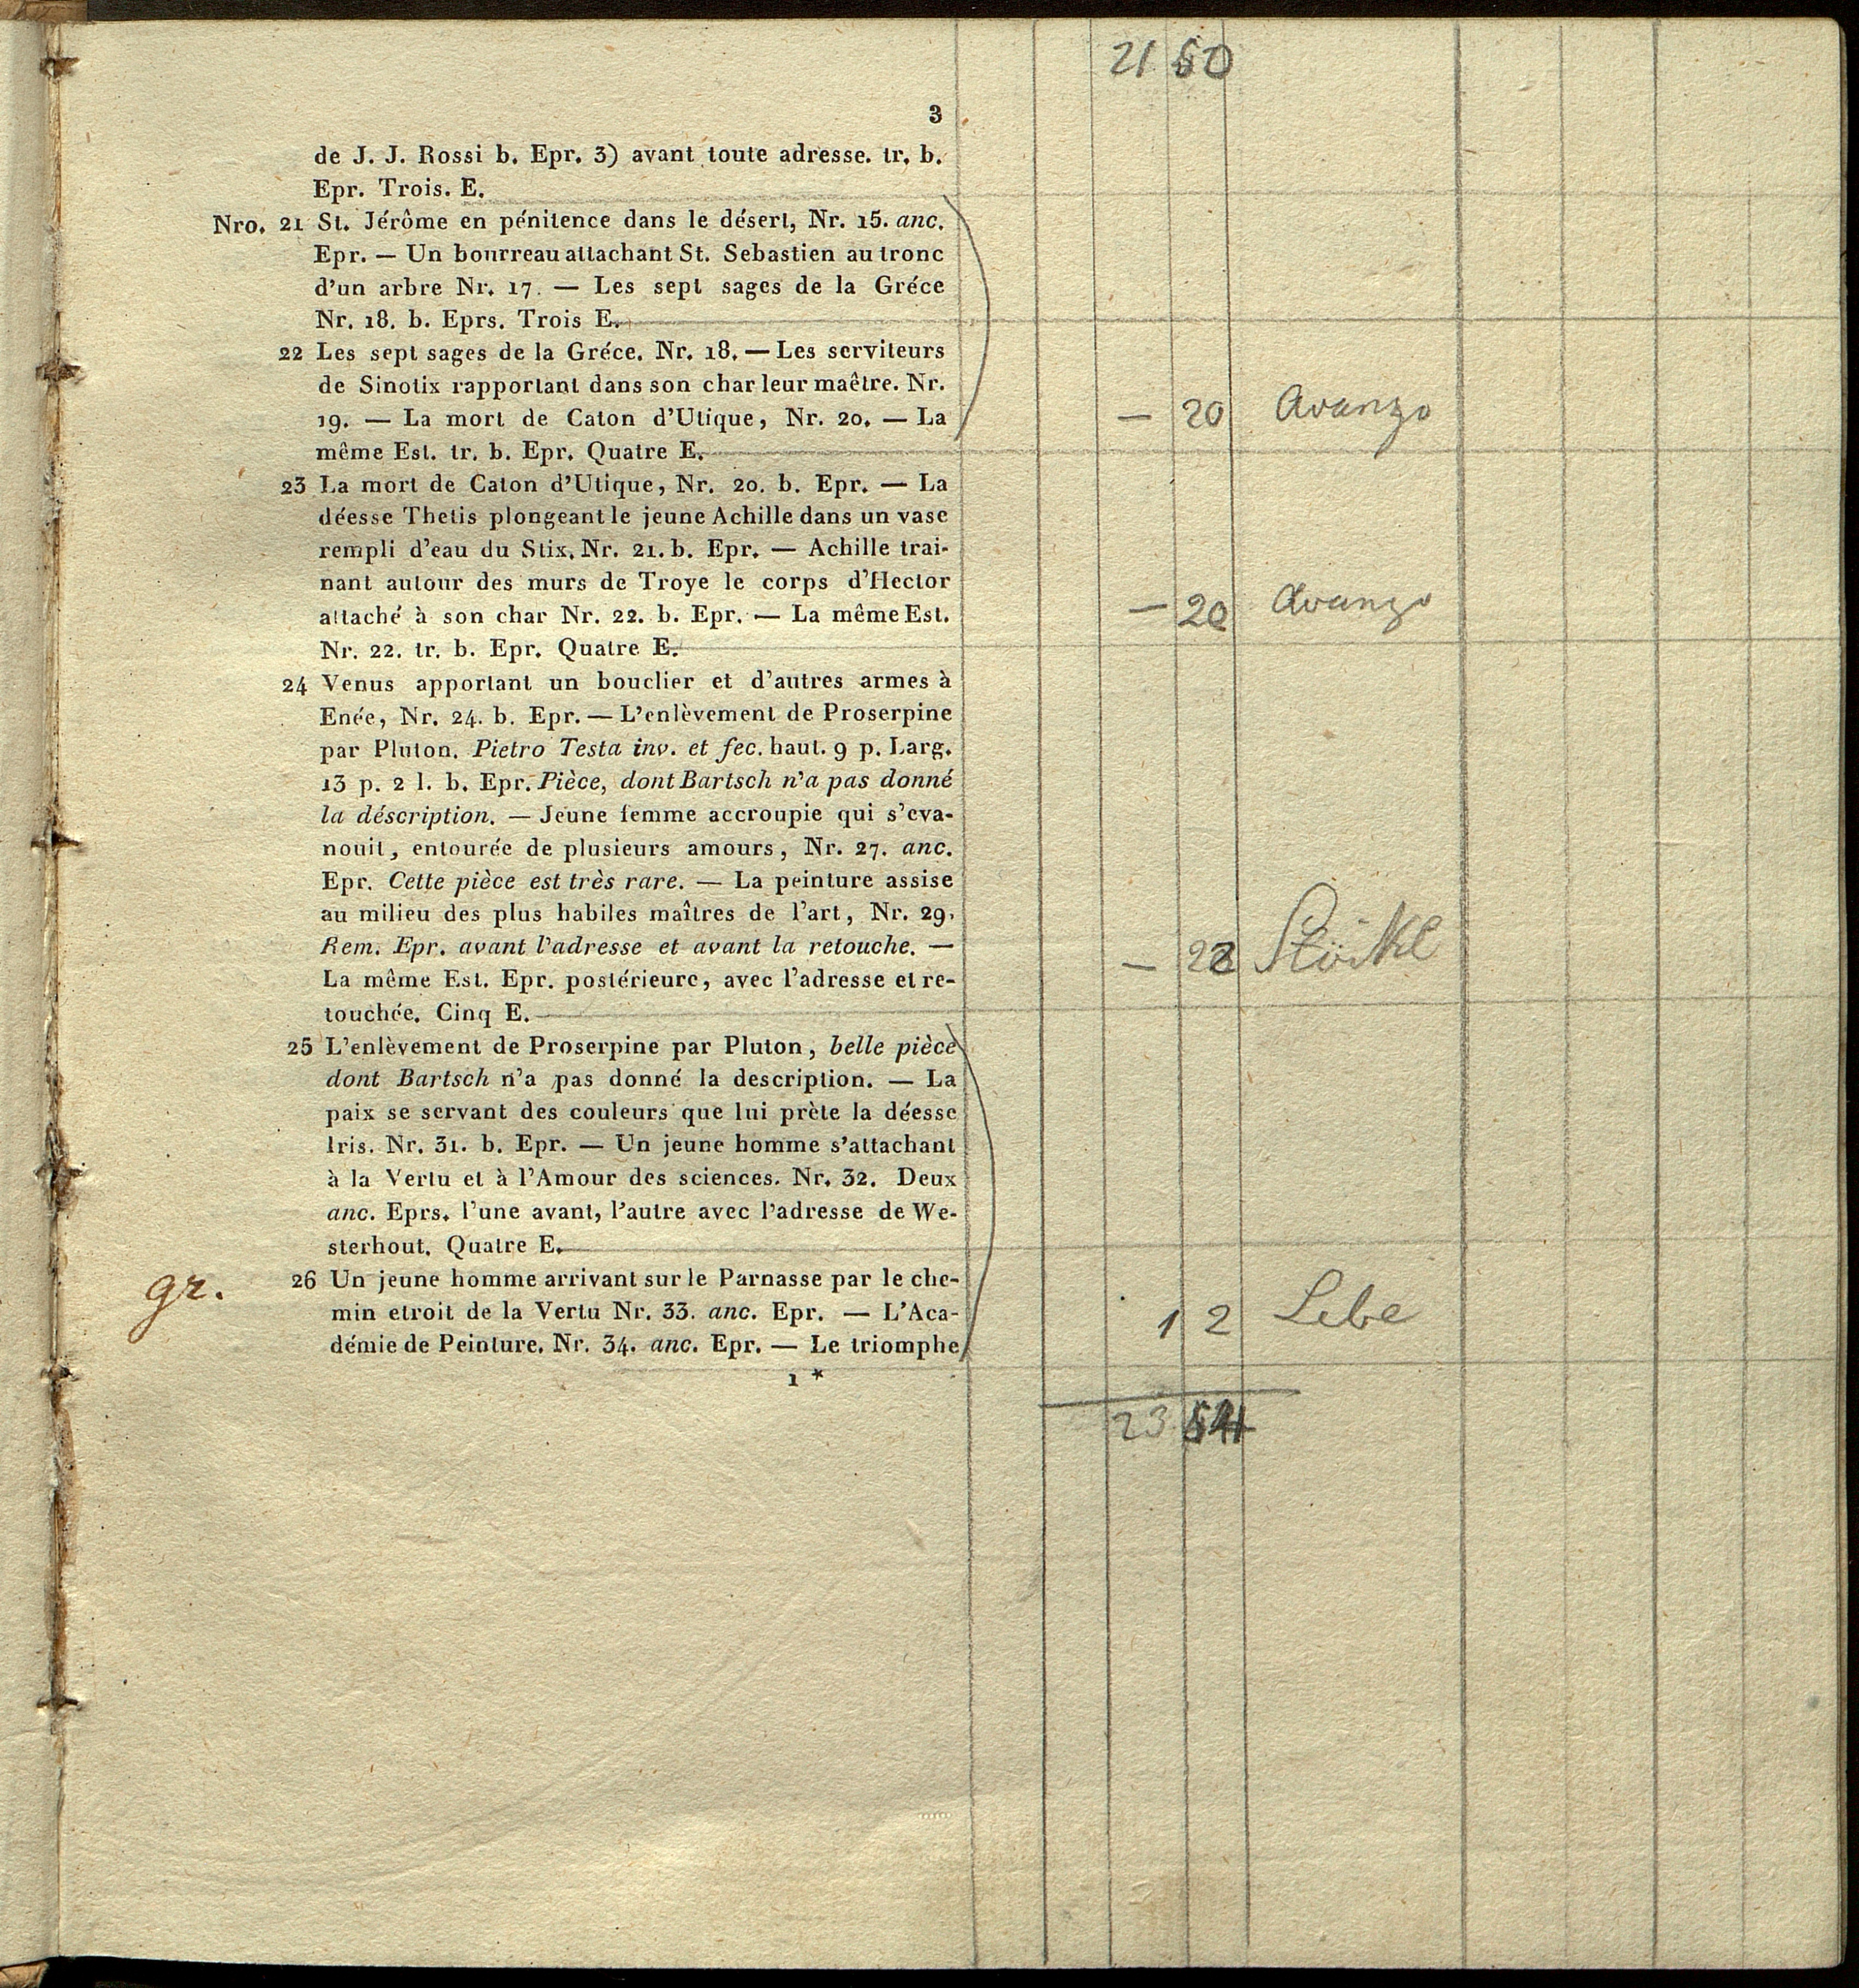 21 50
3
de J. J. Rossi b. Epr. 3) avant toute adresse. tr. b.
Epr. Trois. E.
Nro. 21 St. Jérôme en pénitence dans le désert, Nr. 15. anc.
Epr. — Un bourreau attachant St. Sebastien au tronc
d'un arbre Nr. 17. — Les sept sages de la Gréce
Nr. 18. b. Eprs. Trois E.
22 Les sept sages de la Gréce. Nr. 18. — Les serviteurs
de Sinotix rapportant dans son char leur maêtre. Nr.
19. — La mort de Caton d'Utique, Nr. 20. — La — 20 Avanzo
même Est. tr. b. Epr. Quatre E.
23 La mort de Caton d'Utique, Nr. 20. b. Epr. — La
déesse Thetis plongeant le jeune Achille dans un vase
rempli d'eau du Stix. Nr. 21. b. Epr. — Achille trai-
nant autour des murs de Troye le corps d'Hector
attaché à son char Nr. 22. b. Epr. — La même Est. — 20 Avanzo
Nr. 22. tr. b. Epr. Quatre E.
24 Venus apportant un bouclier et d'autres armes à
Enée, Nr. 24. b. Epr. — L'enlèvement de Proserpine
par Pluton. Pietro Testa inv. et fec. haut. 9 p. Larg.
13 p. 2 l. b. Epr. Pièce, dont Bartsch n'a pas donné
la déscription. — Jeune femme accroupie qui s'eva-
nouit, entourée de plusieurs amours, Nr. 27. anc.
Epr. Cette pièce est très rare. — La peinture assise
au milieu des plus habiles maîtres de l'art, Nr. 29.
Rem. Epr. avant l'adresse et avant la retouche. — — 22 Stöckl
La même Est. Epr. postérieure, avec l'adresse et re-
touchée. Cinq E.
25 L'enlèvement de Proserpine par Pluton, belle pièce
dont Bartsch n'a pas donné la description. — La
paix se servant des couleurs que lui prète la déesse
Iris. Nr. 31. b. Epr. — Un jeune homme s'attachant
à la Vertu et à l'Amour des sciences. Nr. 32. Deux
anc. Eprs. l'une avant, l'autre avec l'adresse de We-
sterhout. Quatre E.
gr. 26 Un jeune homme arrivant sur le Parnasse par le che-
min etroit de la Vertu Nr. 33. anc. Epr. — L'Aca- 1 2
démie de Peinture. Nr. 34. anc. Epr. — Le triomphe
1 *
23